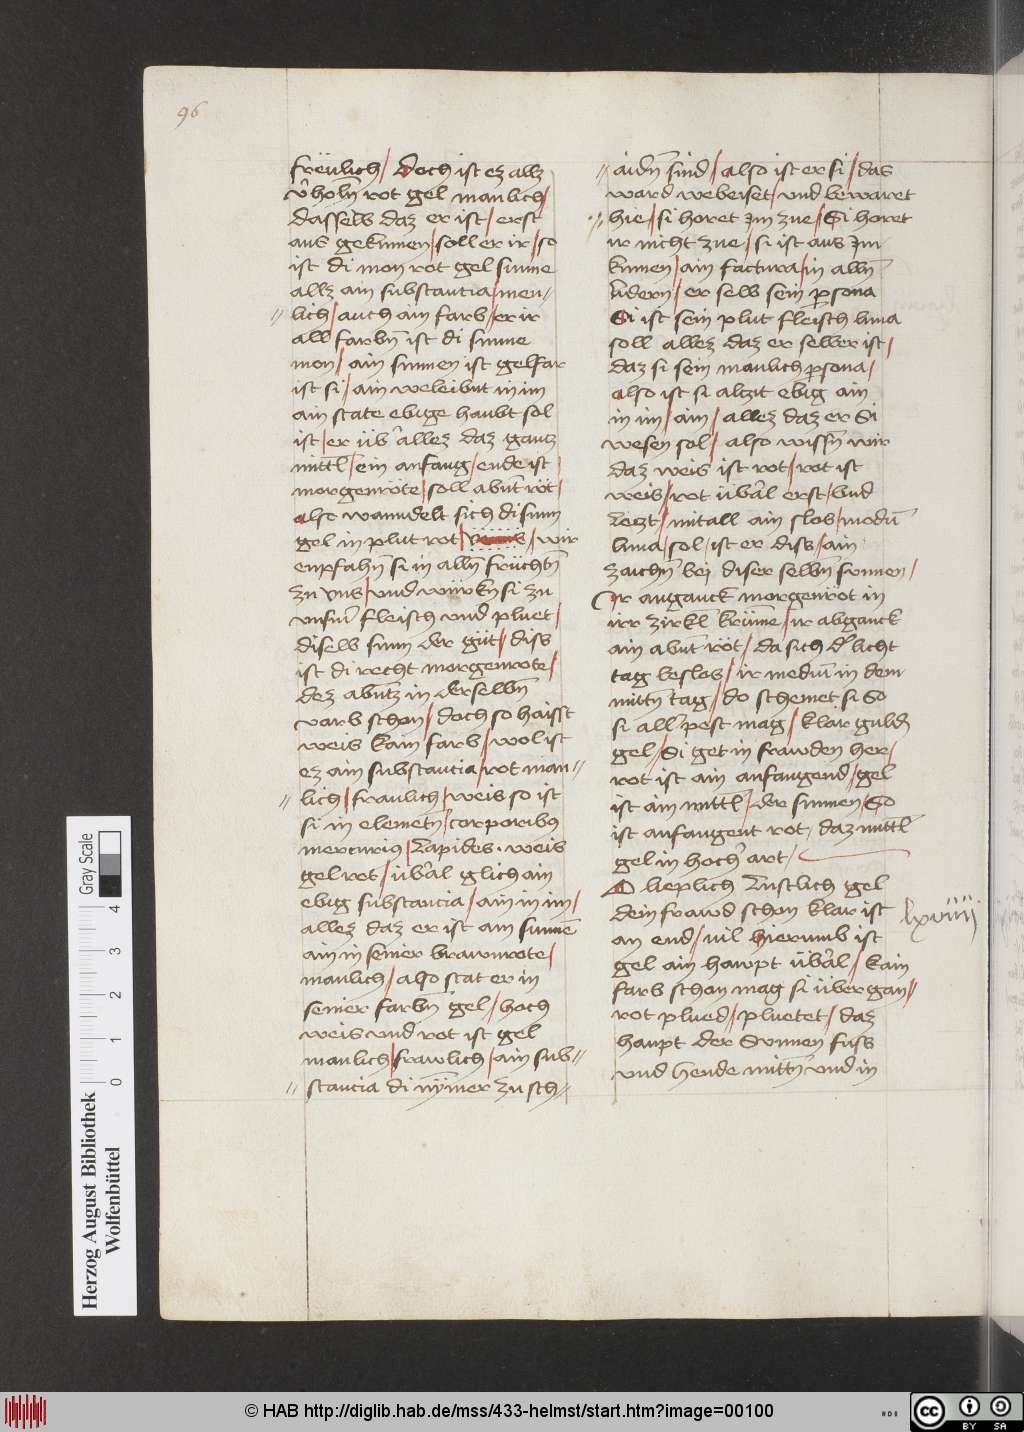 96
freulich / doch ist ez allz
v̾holn̄ rot gel manlich /
dasselb daz er ist / erst
aus gekinnen / soll er ir / so
ist di mon rot gel sunne
allz ain substantia / men〃
〃 lich / auch ain farb / er ir
all farbn̄ ist di sunne
mon / ain sunnen ist gelfar
ist si / ain weleibnt in im
ain state ebige haubt sol
ist / er üb̾ allez daz gantz
mittl / ein anfang / ende ist /
morgenröte / soll abnt röt /
also wanndelt sich di sunn
gel in plut rot / / wir
enpfahn̄ si in alln̄ früchtn̄
zu vns / vnd würkn̄ si zu
vnsm̄ fleisch vnd pluet /
diselb sunn der güt / diss
ist di recht morgenrote /
dez abntz in derselbn̄
varb schon / doch so haisst
weis kain farb / wol ist
ez ain substantia / rot man〃
〃 lich / fraulich / weis so ist
si in elemetn̄ / corporibus
mercurius / Lapides . weis
gel rot / üb̾al glich ain
ebig substancia / ain in im /
allez daz er ist am sunnē
ain in seiner brawnrote /
manlich / also stat er in
seiner farbn̄ gel / hoch
weis vnd rot ist gel
manlich / frawlich / ain sub〃
〃 stancia di nymer zu sch〃
〃 aidn̄ sind / also ist er si / das
ward webeiset / vnd bewaret
〃 hie / si horet im zue / Si horet
ir nicht zue / si ist aus im
kinnen / ain factura / in alln̄
līdern / er selb sein persona
Si ist sein plut fleisch luna
soll allez daz er selber ist /
daz si sein manlich persona /
also ist si altzit ebig ain
in im / ain / allez daz er Si
wesen sol / also wissn̄ wir
daz weis ist rot / rot ist
weis / rot üb̾al erst / vnd
Letzt / mitall ain slos / modū
luna / sol / ist er diss / ain
zaichn̄ bei diser selbn̄ sunnen /
Ir aufganck morgenröt in
irr zirkl krüme / ir abganck
ain abnt röt / da sich d̾ licht
tag beslos / ir mediū in dem
mittn̄ tag / do schemet si So
si all pest mag / klar guldn̄
gel / Si get in frawden her /
rot ist ain anfangend / gel
ist ain mittl / der sunnen / So
ist anfangent rot / daz mittl
gel in hoch̾ art /
O lieplich Lustlich gel
dein frawd schon klar ist
lxviiij
an end / vil hierumb ist
gel ain hawpt üb̾al / kain
farb schon mag si übergan〃
rot plued / pluetet / daz
haupt der Sunnen fuss
vnd hende mittn̄ vnd in
Gray Scale
0 1 2 3 4
Herzog August Bibliothek
Wolfenbüttel
© HAB http://diglib.hab.de/mss/433-helmst/start.htm?image=00100
cc BY SA